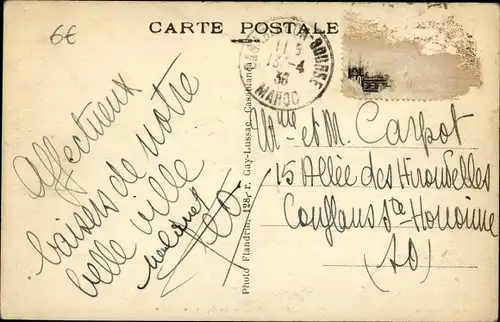 6€
CARTE POSTALE
CASABLANCA-BOURSE
13-4
38
MAROC
Affectueux
baisers de notre
belle ville
Photo Flandrin, 128, r. Gay-Lussac, Casablanca
Mlle et M. Carpot
15 Allée des Hirondelles
Conflans Ste Honorine
(SO)